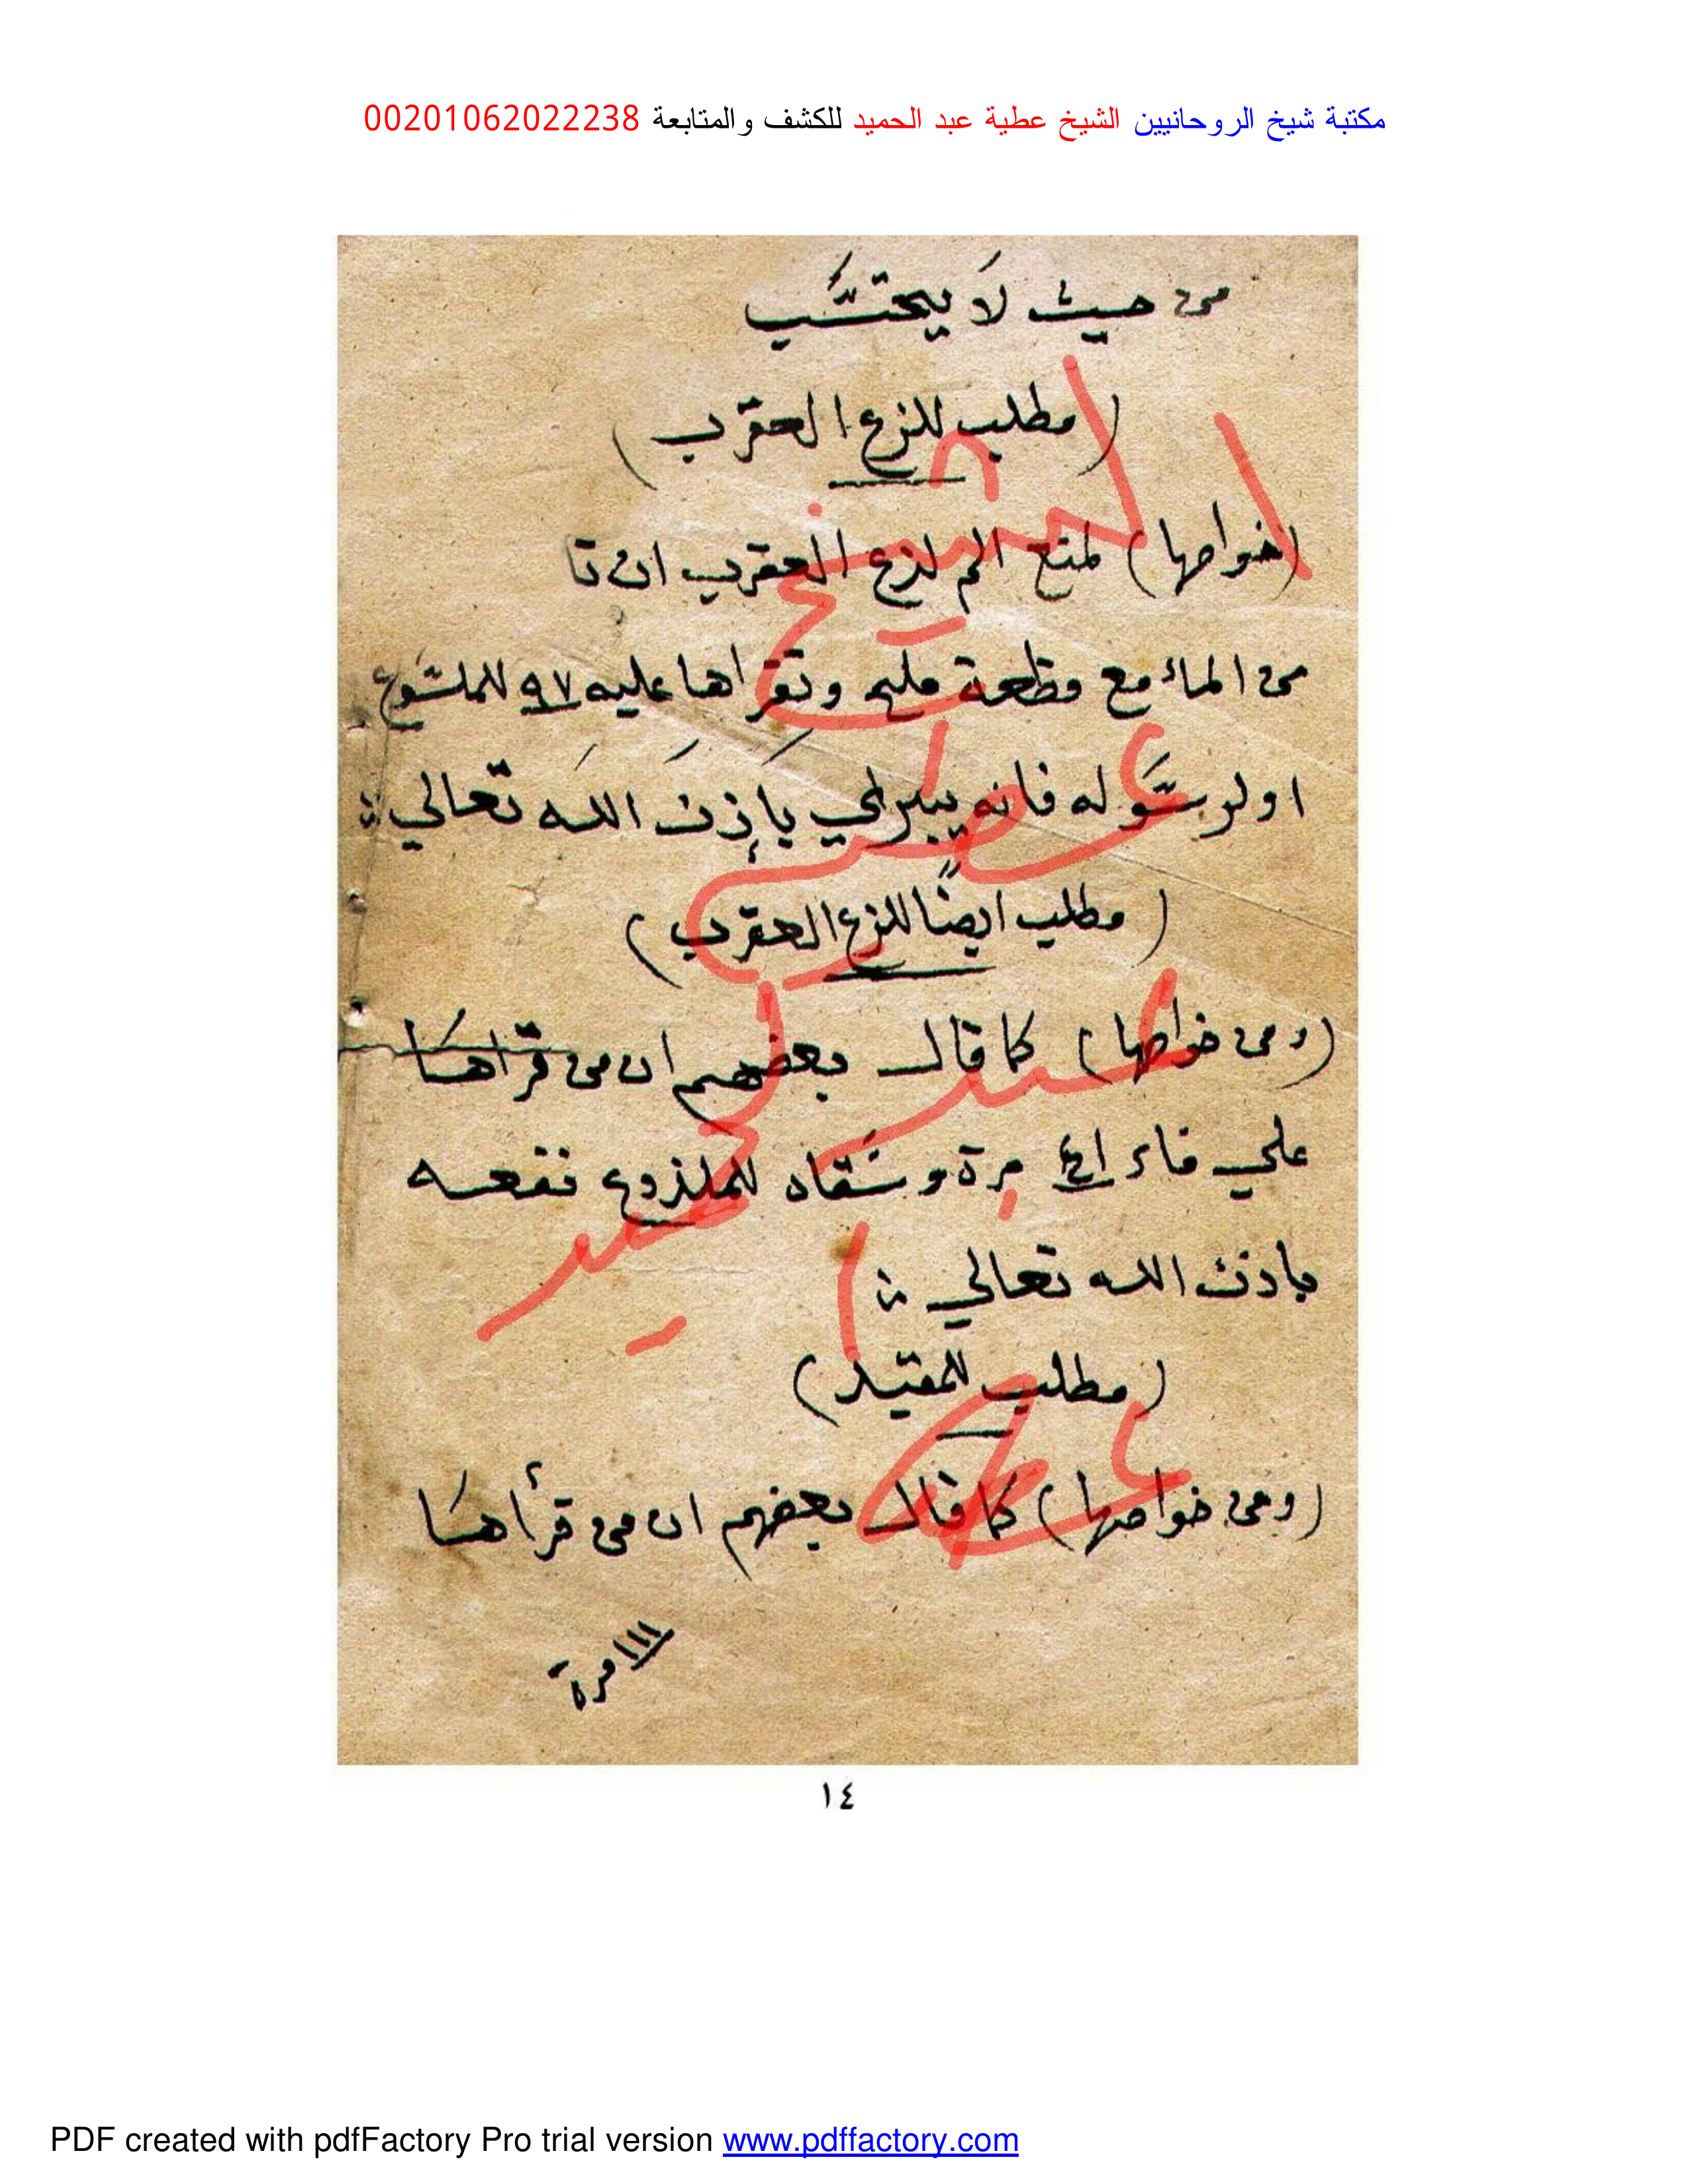 مكتبة شيخ الروحانيين الشيخ عطية عبد الحميد للكشف والمتابعة 00201062022238
من حيث لَا يحتسَّب
(مطلب للزع العقرب)
(خواصها) لمنع الم لدع العقرب ان تا
من الماء مع وظعة ملح وتقراها عليه ٩٧ للملسوع
او لرسَوله فانه يبرا باِذنَ اللَه تعالي
(مطلب ايضًا للزع العقرب)
(ومن خواصها) كما قال بعضهم ان من قراهَا
علي ماء مرة وسَقاه للملذوع نفعه
باذن الله تعالي
(مطلب للمقيد)
(ومن خواصها) كما قال بعضهم ان من قرأهَا
١١١ مرة
١٤
الشيخ
عطية
عبد
الحميد
PDF created with pdfFactory Pro trial version www.pdffactory.com